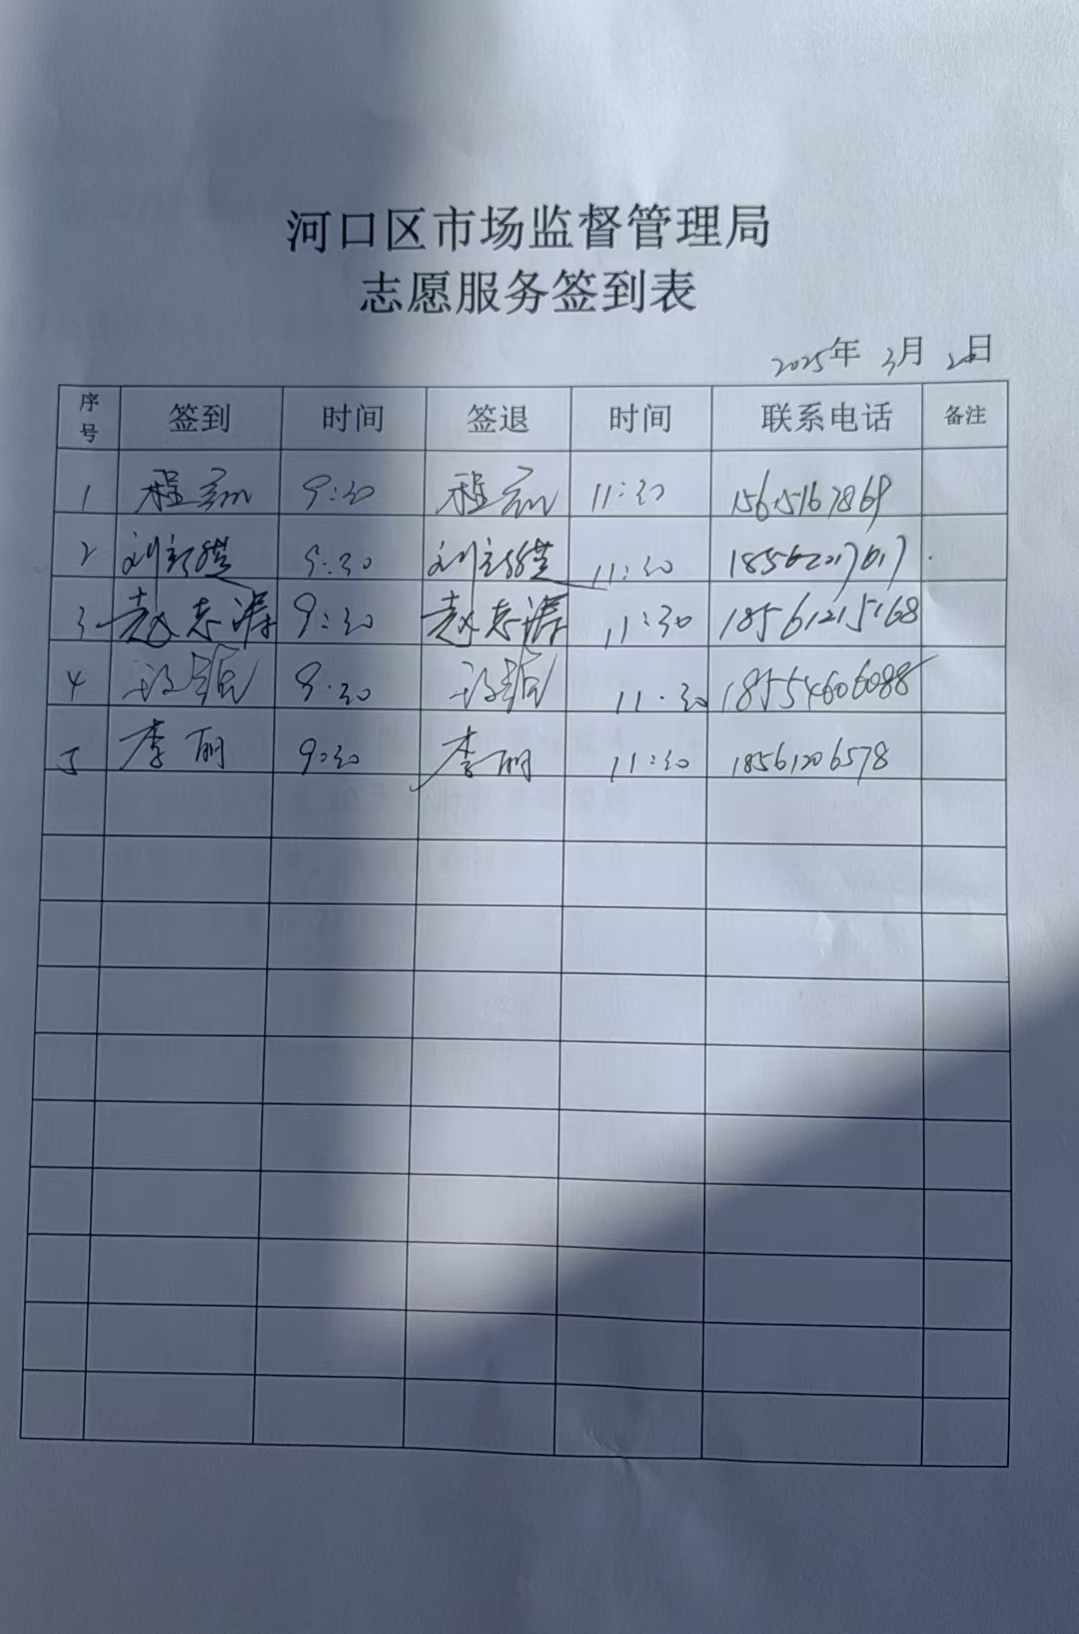 河口区市场监督管理局
志愿服务签到表
2025年 3月 日
序号 签到 时间 签退 时间 联系电话 备注
1 程 9:30 程 11:30 15615167869
2 刘 9:30 刘 11:30 18562017017
3 赵志涛 9:30 赵志涛 11:30 18561215168
4 9:30 11:30 18554606088
5 李丽 9:30 李丽 11:30 18561206578